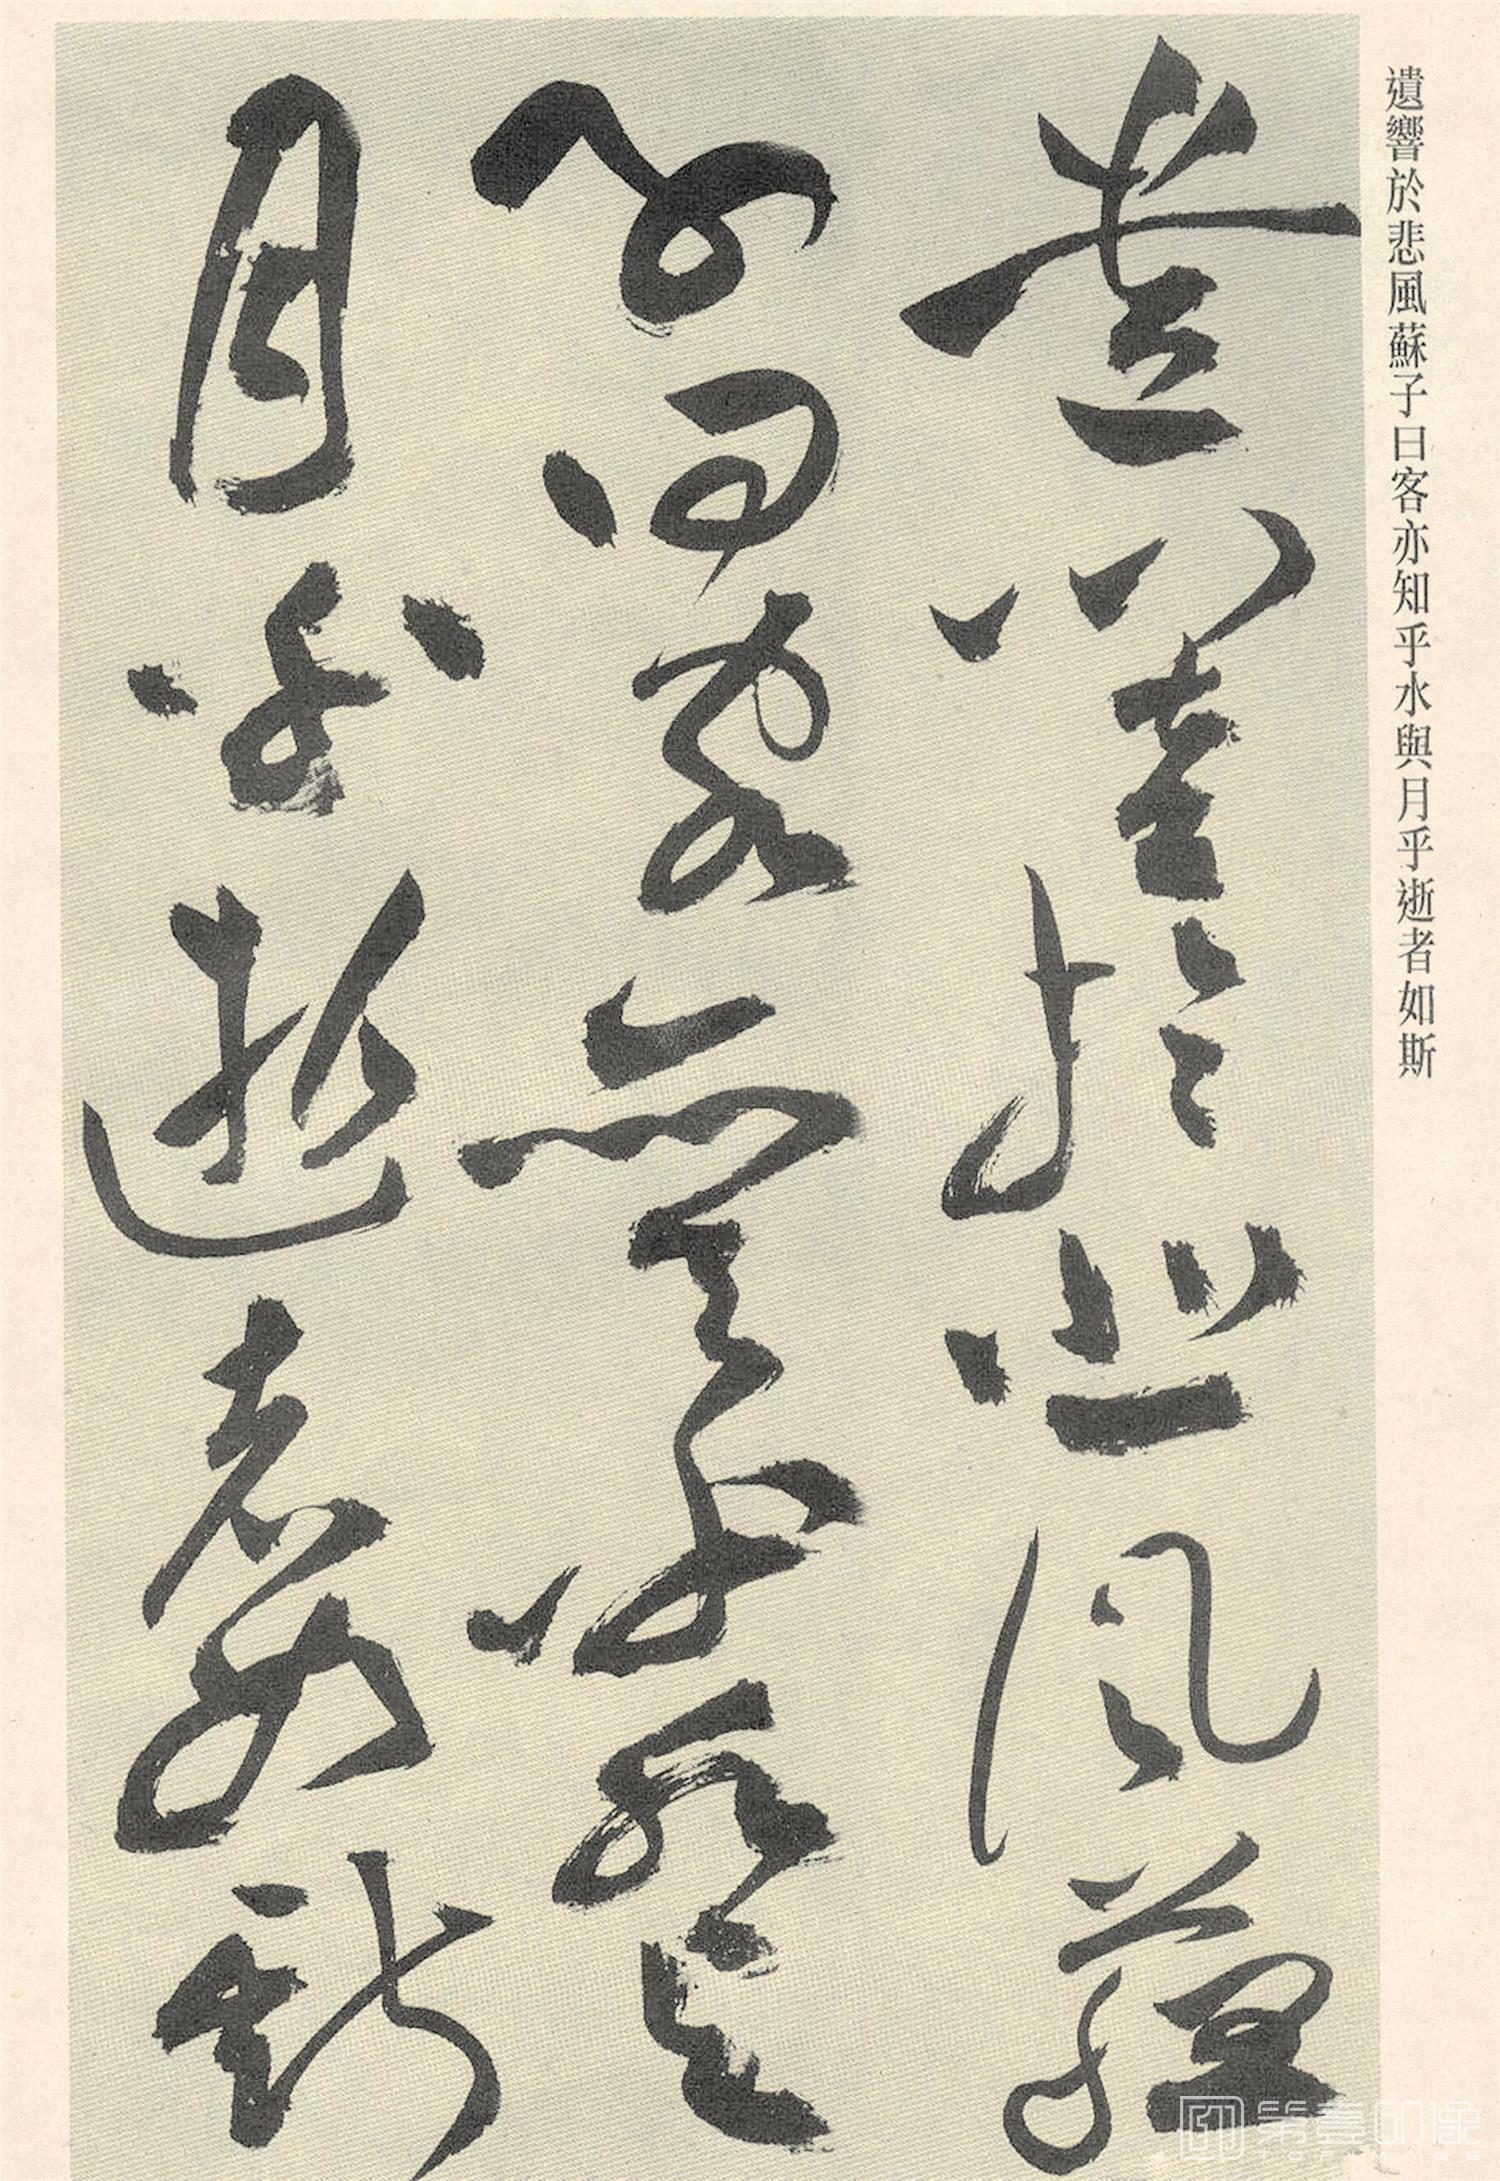 遺響於悲風蘇子曰客亦知乎水與月乎逝者如斯
遺響於悲風蘇
子曰客亦知乎水與
月乎逝者如斯